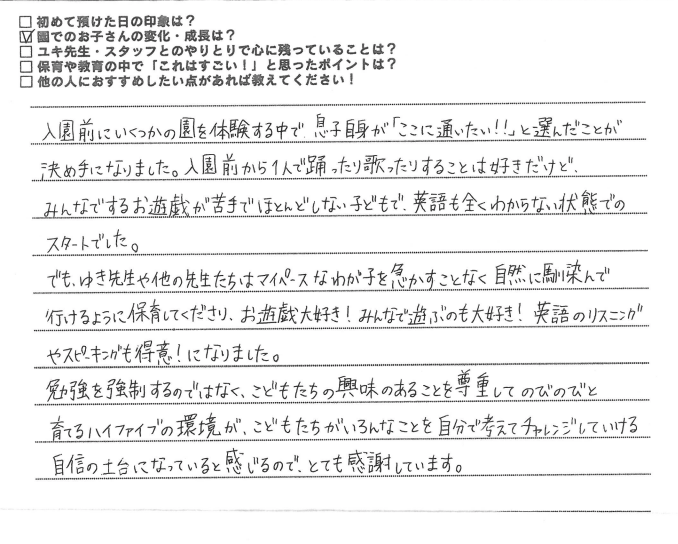 □ 初めて預けた日の印象は？
☑ 園でのお子さんの変化・成長は？
□ ユキ先生・スタッフとのやりとりで心に残っていることは？
□ 保育や教育の中で「これはすごい！」と思ったポイントは？
□ 他の人におすすめしたい点があれば教えてください！
入園前にいくつかの園を体験する中で、息子自身が「ここに通いたい!!」と選んだことが
決め手になりました。入園前から1人で踊ったり歌ったりすることは好きだけど、
みんなでするお遊戯が苦手でほとんどしない子どもで、英語も全くわからない状態での
スタートでした。
でも、ゆき先生や他の先生たちはマイペースなわが子を急かすことなく自然に馴染んで
行けるように保育してくださり、お遊戯大好き！みんなで遊ぶのも大好き！英語のリスニング
やスピーキングも得意！になりました。
勉強を強制するのではなく、こどもたちの興味のあることを尊重してのびのびと
育てるハイファイブの環境が、こどもたちがいろんなことを自分で考えてチャレンジしていける
自信の土台になっていると感じるので、とても感謝しています。